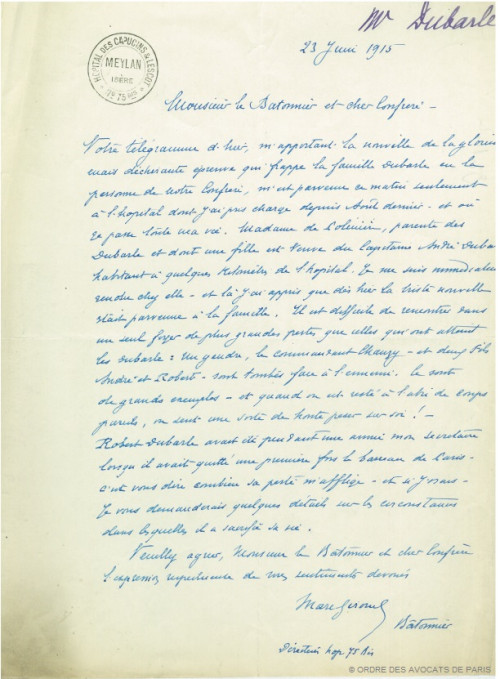 Mr Dubarle
23 Juin 1915
HÔPITAL DES CAPUCINS
MEYLAN
ISÈRE
Monsieur le Batonnier et cher Confrère -
Votre télégramme d'hier, m'apportant la nouvelle de la glorieu
mais déchirante épreuve qui frappe la famille Dubarle en la
personne de notre Confrère, m'est parvenue ce matin seulement
à l'hopital dont j'ai pris charge depuis Août dernier - et où
se passe toute ma vie. Madame de parente des
Dubarle et dont une fille est veuve du Capitaine André Duba
habitant à quelques Kilomètres de l'hopital. Je me suis immédiate
rendu chez elle - et là j'ai appris que dès hier la triste nouvelle
était parvenue à la famille. Il est difficile de rencontrer dans
un seul foyer de plus grandes pertes que celles qui ont atteint
les Dubarle : un gendre, le commandant - et deux fils
André et Robert - sont tombés face à l'ennemi. Ce sont
de grands exemples - et quand on est resté à l'abri de coups
pareils, on sent une sorte de honte peser sur soi ! -
Robert Dubarle avait été pendant une année mon secrétaire
lorsqu'il avait quitté une première fois le barreau de Paris -
c'est vous dire combien sa perte m'afflige - et si j'osais -
Je vous demanderais quelques détails sur les circonstances
dans lesquelles il a sacrifié sa vie.
Veuillez agréer, Monsieur le Bâtonnier et cher Confrère
l'expression respectueuse de mes sentiments dévoués
Bâtonnier
Directeur hop. 75 Bis
© ORDRE DES AVOCATS DE PARIS